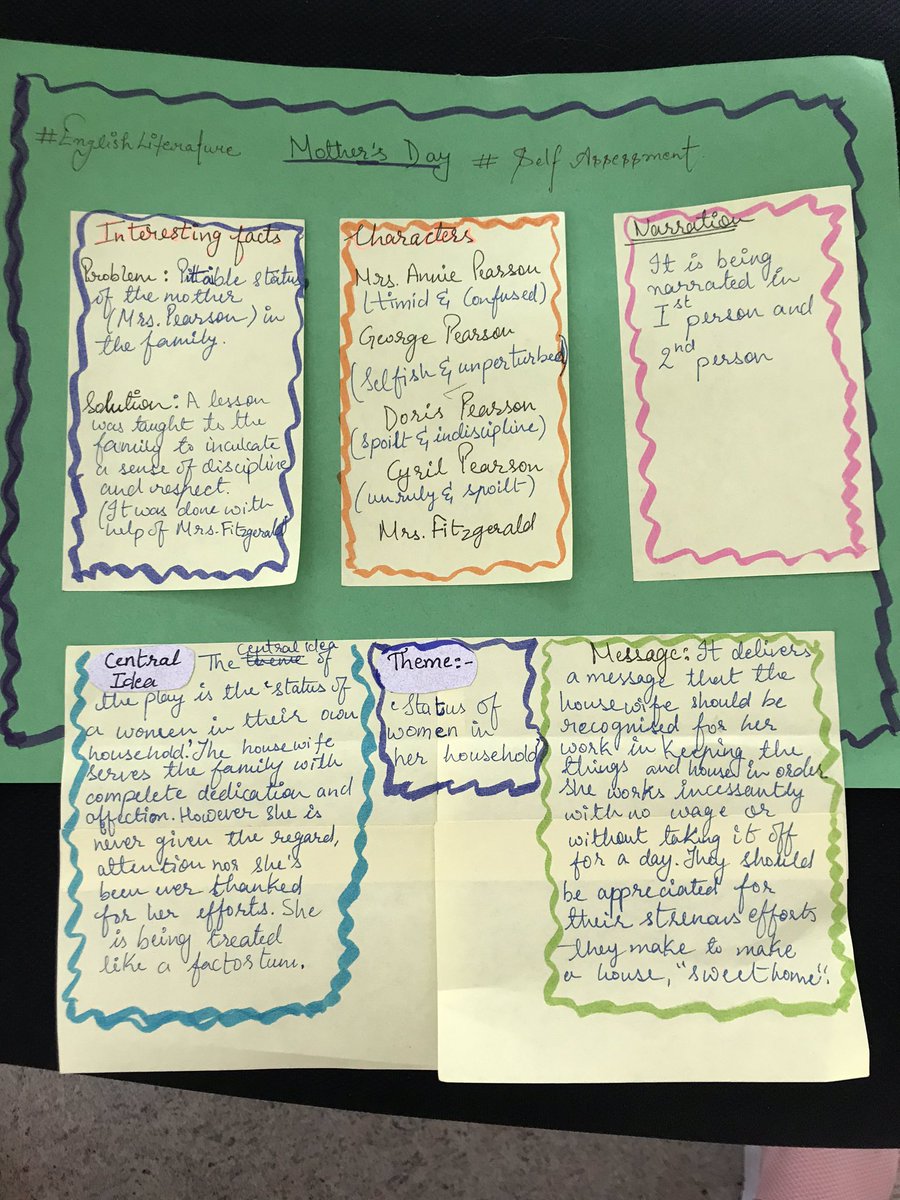 #EnglishLiterature Mother's Day # Self Assessment
Interesting facts
Problem: Pittable status
of the mother
(Mrs. Pearson) in
the family.
Solution: A lesson
was taught to the
family to inculcate
a sense of discipline
and respect.
(It was done with
help of Mrs. Fitzgerald
Characters
Mrs. Annie Pearson
(timid & confused)
George Pearson
(selfish & unperturbed)
Doris Pearson
(spoilt & indiscipline)
Cyril Pearson
(unruly & spoilt)
Mrs. Fitzgerald
Narration
It is being
narrated in
1st person and
2nd person
Central Idea
The theme central idea of
the play is the 'status of
a women in their own
household'. The housewife
serves the family with
compelete dedication and
affection. However she is
never given the regard,
attention nor she's
been ever thanked
for her efforts. She
is being treated
like a factortum.
Theme:-
'Status of
women in
her household
Message: It delivers
a message that the
housewife should be
recognised for her
work in keeping the
things and house in order
She works incessantly
with no wage or
without taking it off
for a day. They should
be appreciated for
their strenous efforts
they make to make
a house, "sweet home".